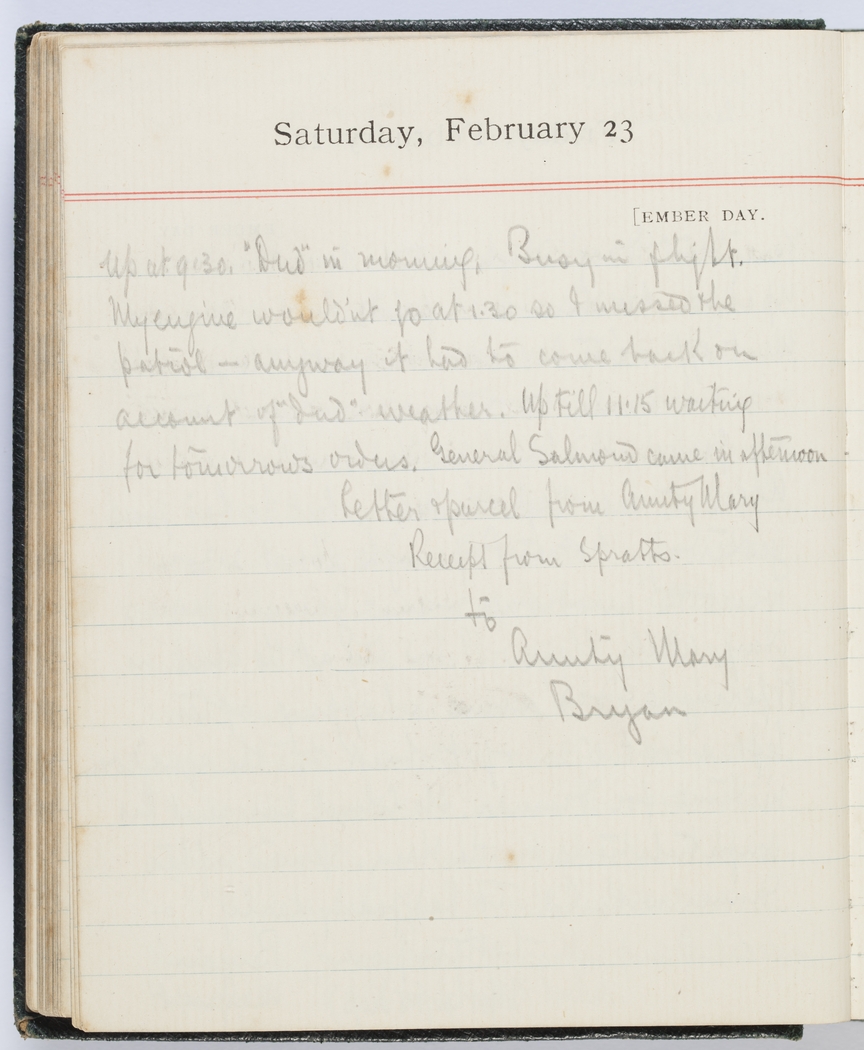 Saturday, February 23
[EMBER DAY.
Up at 9.30. "Dud" in morning, Busy in flight.
My engine wouldn't go at 1.30 so I missed the
patrol — anyway it had to come back on
account of "dud" weather. Up till 11.15 waiting
for tomorrows orders. General Salmond came in afternoon.
Letter & parcel from Aunty Mary
Receipt from Spratts.
to
Aunty Mary
Bryan